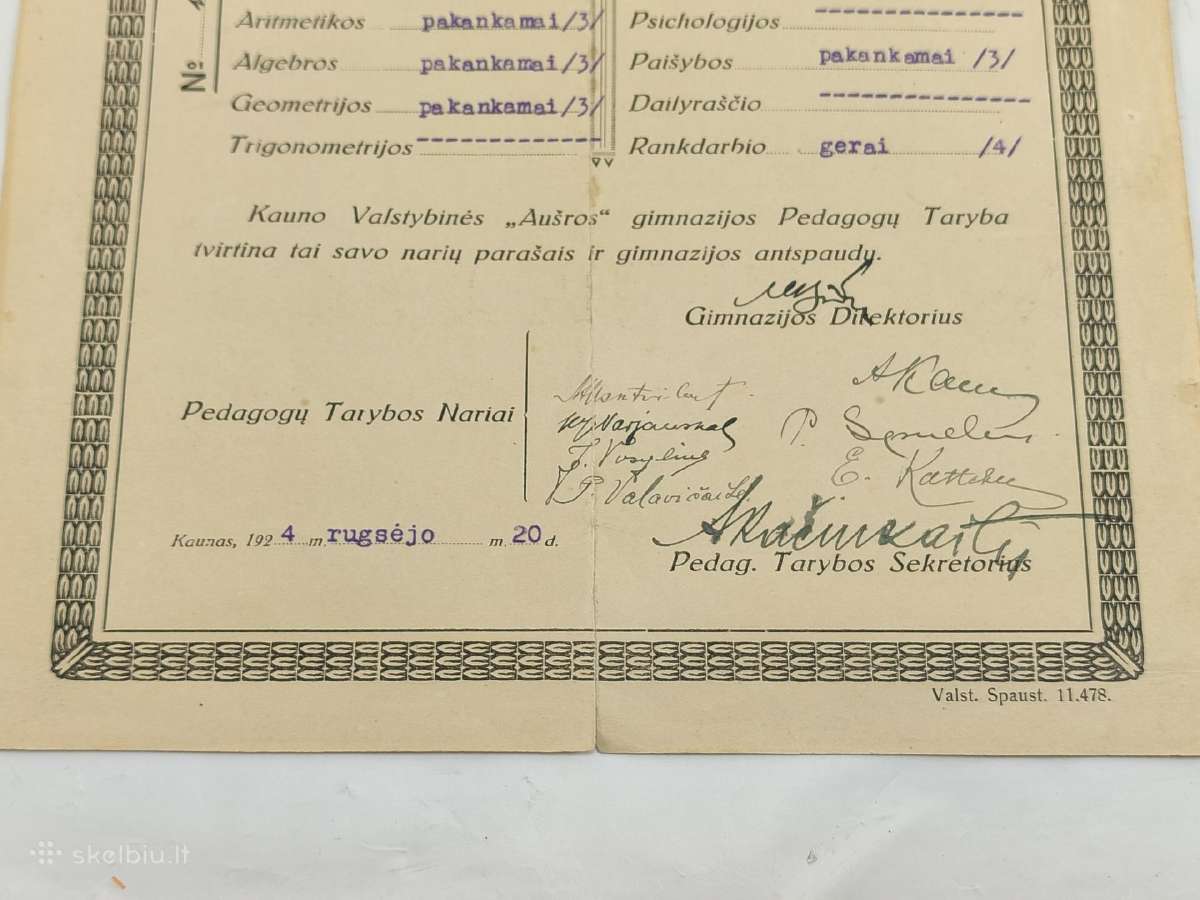 №
Aritmetikos pakankamai/3/
Algebros pakankamai/3/
Geometrijos pakankamai/3/
Trigonometrijos ---------------
Psichologijos ---------------
Paišybos pakankamai /3/
Dailyraščio ---------------
Rankdarbio gerai /4/
Kauno Valstybinės „Aušros“ gimnazijos Pedagogų Taryba
tvirtina tai savo narių parašais ir gimnazijos antspaudų.
Gimnazijos Direktorius
Pedagogų Tarybos Nariai
P.
E.
Kaunas, 1924 m. rugsėjo m. 20 d.
Pedag. Tarybos Sekretorius
Valst. Spaust. 11.478.
skelbiu.lt